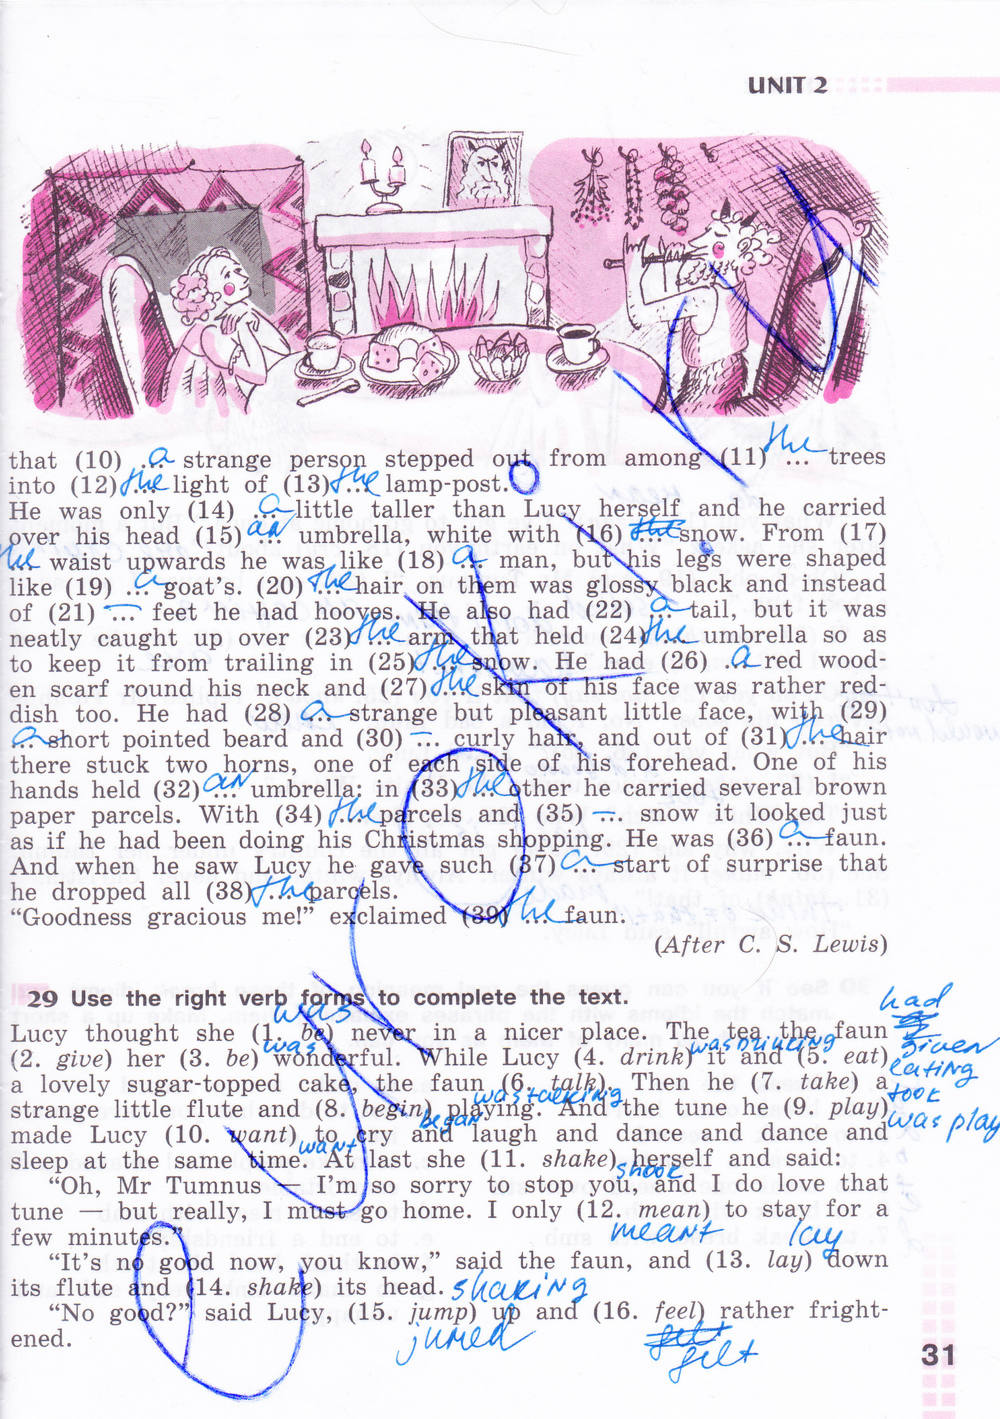 UNIT 2
that (10) ... a strange person stepped out from among (11) ... the trees
into (12) ... the light of (13) ... the lamp-post.
He was only (14) ... a little taller than Lucy herself and he carried
over his head (15) ... an umbrella, white with (16) ... the snow. From (17)
the waist upwards he was like (18) ... a man, but his legs were shaped
like (19) ... a goat's. (20) ... the hair on them was glossy black and instead
of (21) ... — feet he had hooves. He also had (22) ... a tail, but it was
neatly caught up over (23) ... the arm that held (24) ... the umbrella so as
to keep it from trailing in (25) ... the snow. He had (26) ... a red wood-
en scarf round his neck and (27) ... the skin of his face was rather red-
dish too. He had (28) ... a strange but pleasant little face, with (29)
... a short pointed beard and (30) ... — curly hair, and out of (31) ... the hair
there stuck two horns, one of each side of his forehead. One of his
hands held (32) ... an umbrella; in (33) ... the other he carried several brown
paper parcels. With (34) ... the parcels and (35) ... — snow it looked just
as if he had been doing his Christmas shopping. He was (36) ... a faun.
And when he saw Lucy he gave such (37) ... a start of surprise that
he dropped all (38) ... the parcels.
“Goodness gracious me!” exclaimed (39) ... the faun.
(After C. S. Lewis)
29 Use the right verb forms to complete the text.
was had
Lucy thought she (1. be) never in a nicer place. The tea the faun
given
was was drinking
(2. give) her (3. be) wonderful. While Lucy (4. drink) it and (5. eat)
eating
a lovely sugar-topped cake, the faun (6. talk). Then he (7. take) a
was talking took
strange little flute and (8. begin) playing. And the tune he (9. play)
began was play
made Lucy (10. want) to cry and laugh and dance and dance and
want
sleep at the same time. At last she (11. shake) herself and said:
shook
“Oh, Mr Tumnus — I'm so sorry to stop you, and I do love that
tune — but really, I must go home. I only (12. mean) to stay for a
meant lay
few minutes.”
“It's no good now, you know,” said the faun, and (13. lay) down
its flute and (14. shake) its head. shaking
“No good?” said Lucy, (15. jump) up and (16. feel) rather fright-
jumed felt
ened.
felt
31